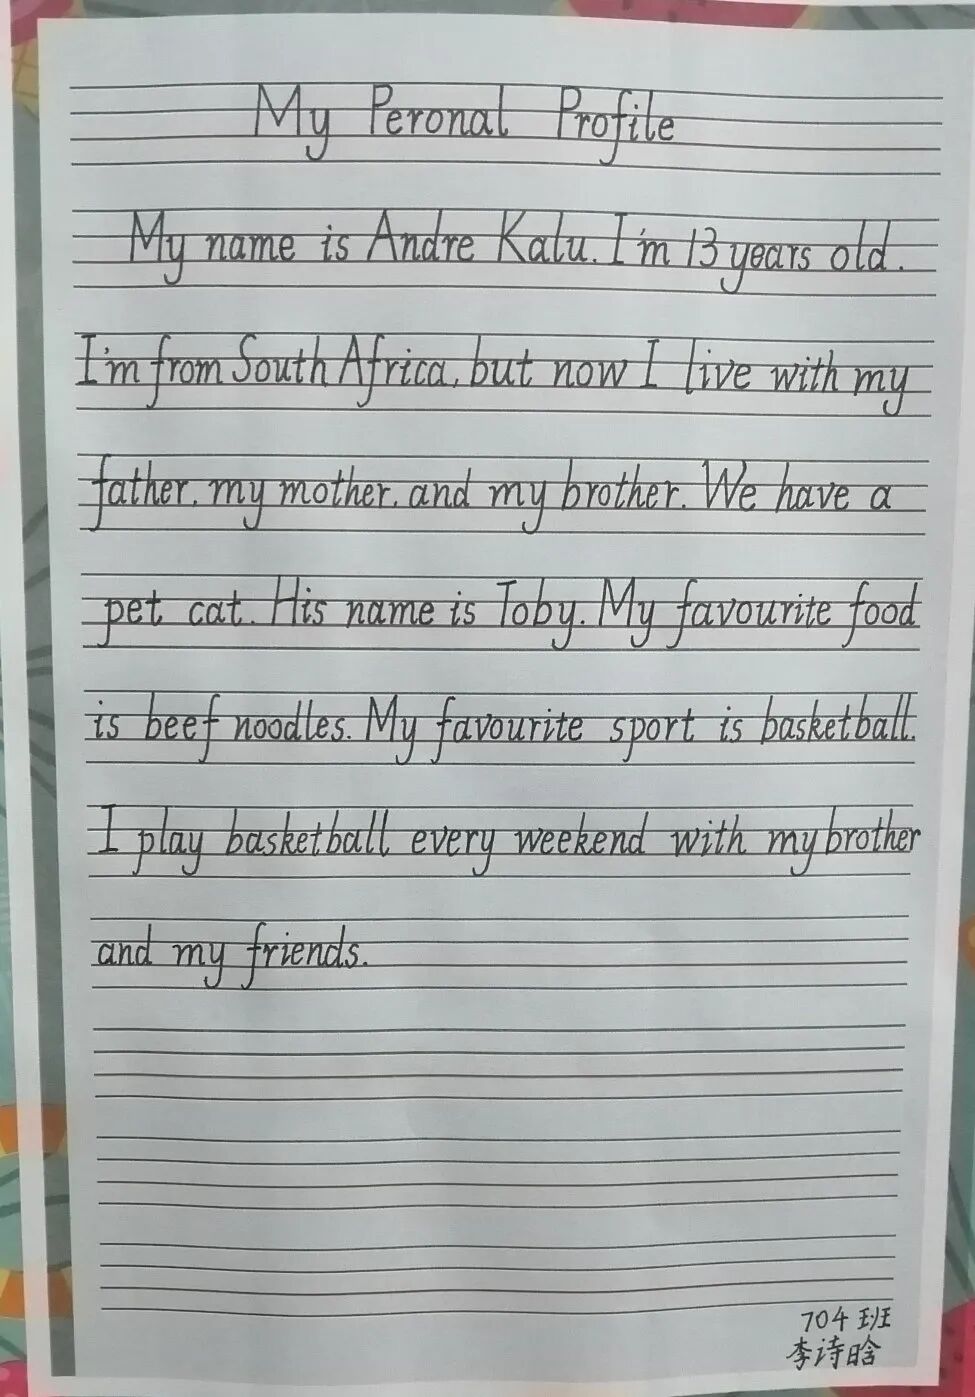 My Peronal Profile
My name is Andre Kalu. I'm 13 years old.
I'm from South Africa, but now I live with my
father, my mother, and my brother. We have a
pet cat. His name is Toby. My favourite food
is beef noodles. My favourite sport is basketball.
I play basketball every weekend with my brother
and my friends.
704班
李诗晗